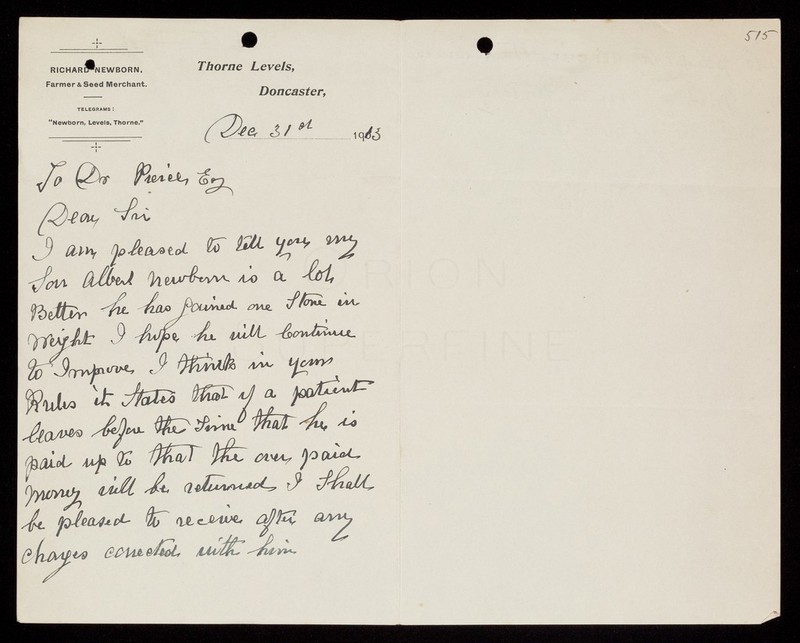 515
RICHARD NEWBORN,
Farmer & Seed Merchant.
TELEGRAMS:
"Newborn, Levels, Thorne."
Thorne Levels,
Doncaster,
Dec 31st 1903
To Dr Pierce, Esq
Dear Sir
I am pleased to tell you my
Son Albert Newborn is a lot
Better he has gained one Stone in
Weight I hope he will Continue
to Improve, I think in your
Rules it States that if a patient
leaves before the Time that he is
paid up to that the over paid
money will be returned I Shall
be pleased to receive after any
Charges conected with him
ORION
SUPERFINE